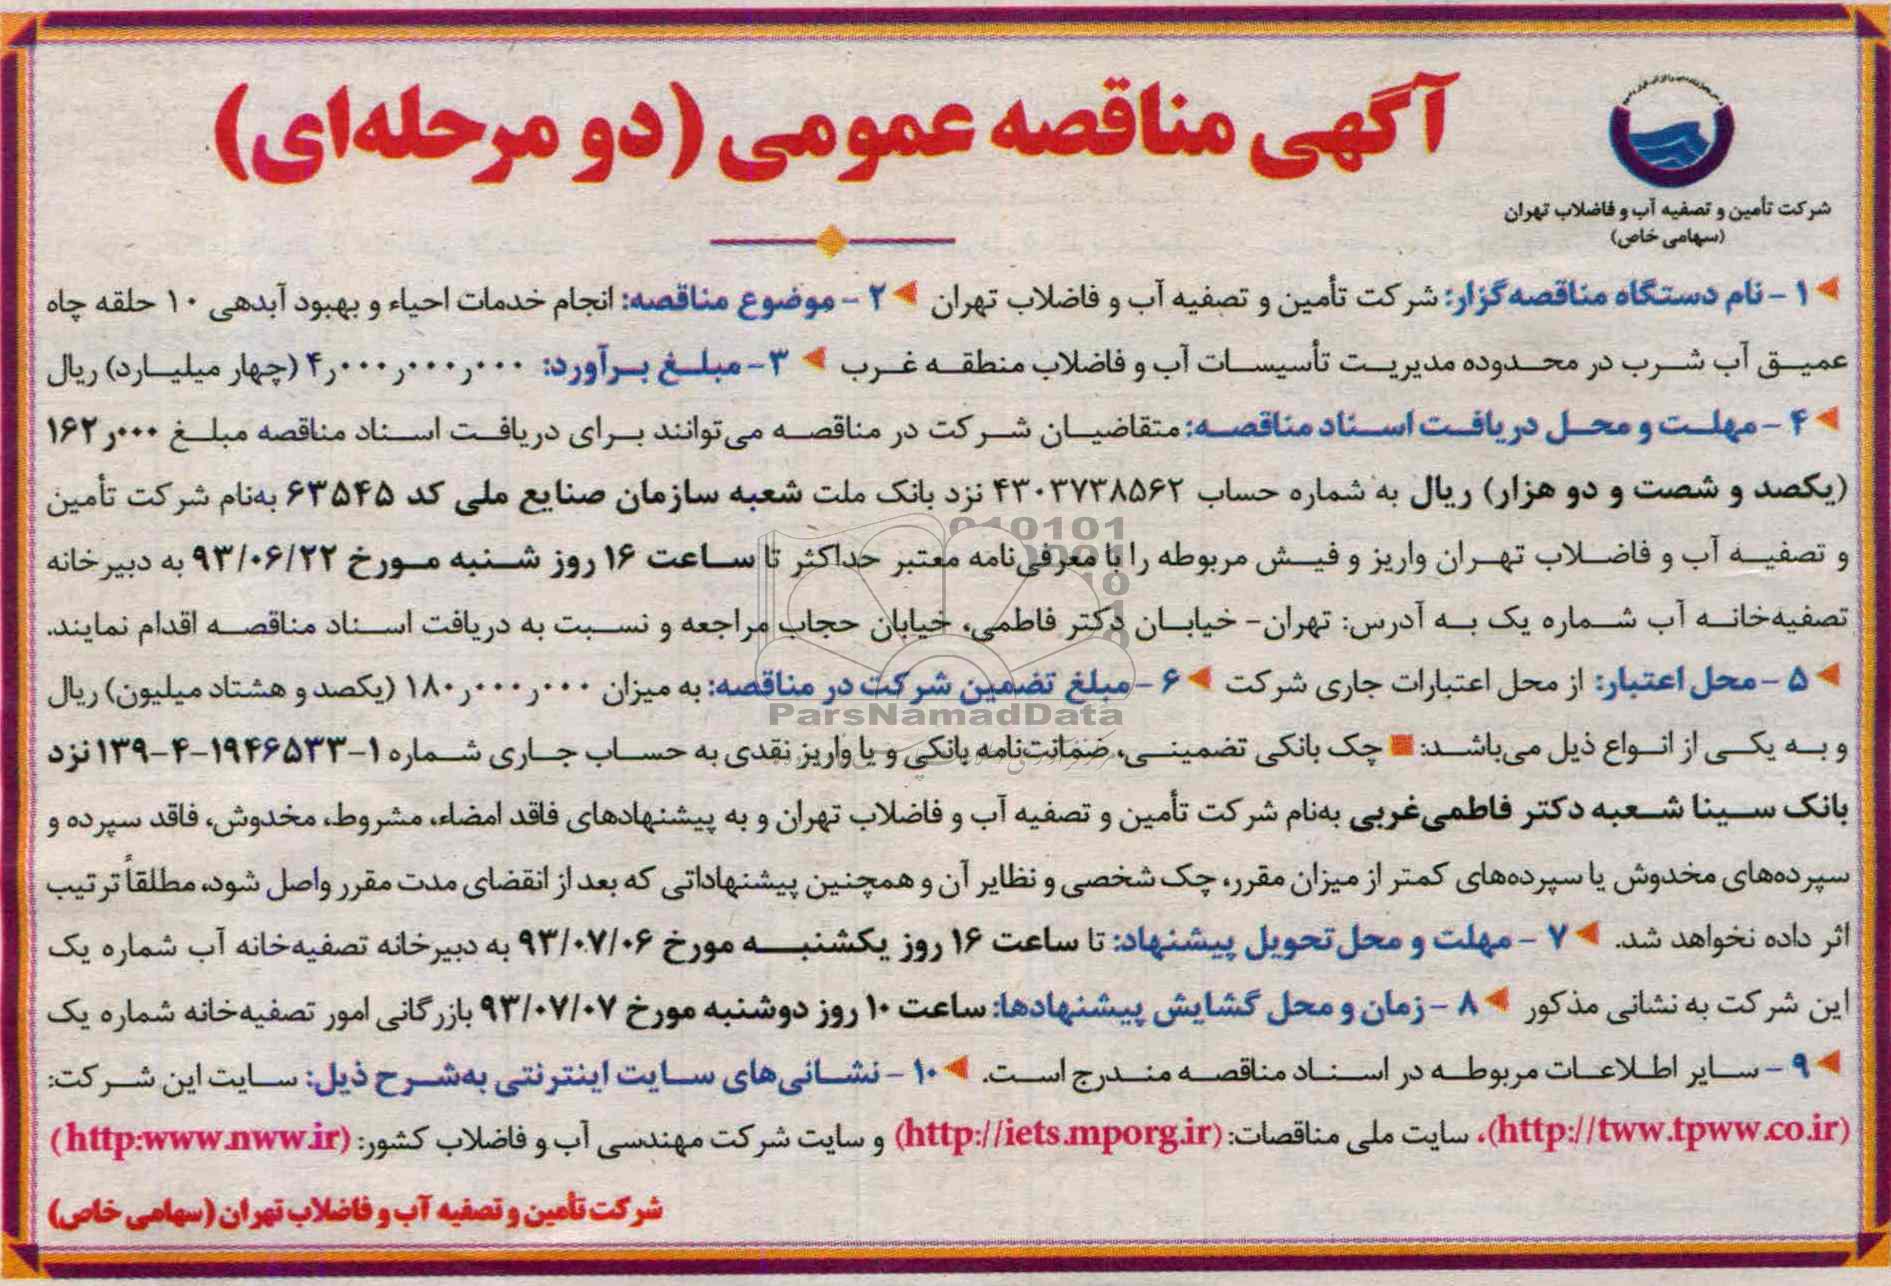 آگهی مناقصه عمومی (دو مرحله‌ای)
شرکت تأمین و تصفیه آب و فاضلاب تهران
(سهامی خاص)
۱ - نام دستگاه مناقصه‌گزار: شرکت تأمین و تصفیه آب و فاضلاب تهران ۲ - موضوع مناقصه: انجام خدمات احیاء و بهبود آبدهی ۱۰ حلقه چاه
عمیق آب شرب در محدوده مدیریت تأسیسات آب و فاضلاب منطقه غرب ۳ - مبلغ برآورد: ۴ر۰۰۰ر۰۰۰ر۰۰۰ (چهار میلیارد) ریال
۴ - مهلت و محل دریافت اسناد مناقصه: متقاضیان شرکت در مناقصه می‌توانند برای دریافت اسناد مناقصه مبلغ ۱۶۲ر۰۰۰
(یکصد و شصت و دو هزار) ریال به شماره حساب ۴۳۰۳۷۳۸۵۶۲ نزد بانک ملت شعبه سازمان صنایع ملی کد ۶۳۵۴۵ به‌نام شرکت تأمین
و تصفیه آب و فاضلاب تهران واریز و فیش مربوطه را با معرفی‌نامه معتبر حداکثر تا ساعت ۱۶ روز شنبه مورخ ۹۳/۰۶/۲۲ به دبیرخانه
تصفیه‌خانه آب شماره یک به آدرس: تهران- خیابان دکتر فاطمی، خیابان حجاب مراجعه و نسبت به دریافت اسناد مناقصه اقدام نمایند.
۵ - محل اعتبار: از محل اعتبارات جاری شرکت ۶ - مبلغ تضمین شرکت در مناقصه: به میزان ۱۸۰ر۰۰۰ر۰۰۰ (یکصد و هشتاد میلیون) ریال
و به یکی از انواع ذیل می‌باشد: ■ چک بانکی تضمینی، ضمانت‌نامه بانکی و یا واریز نقدی به حساب جاری شماره ۱-۱۹۴۶۵۳۳-۴-۱۳۹ نزد
بانک سینا شعبه دکتر فاطمی‌غربی به‌نام شرکت تأمین و تصفیه آب و فاضلاب تهران و به پیشنهادهای فاقد امضاء، مشروط، مخدوش، فاقد سپرده و
سپرده‌های مخدوش یا سپرده‌های کمتر از میزان مقرر، چک شخصی و نظایر آن و همچنین پیشنهاداتی که بعد از انقضای مدت مقرر واصل شود، مطلقاً ترتیب
اثر داده نخواهد شد. ۷ - مهلت و محل تحویل پیشنهاد: تا ساعت ۱۶ روز یکشنبه مورخ ۹۳/۰۷/۰۶ به دبیرخانه تصفیه‌خانه آب شماره یک
این شرکت به نشانی مذکور ۸ - زمان و محل گشایش پیشنهادها: ساعت ۱۰ روز دوشنبه مورخ ۹۳/۰۷/۰۷ بازرگانی امور تصفیه‌خانه شماره یک
۹ - سایر اطلاعات مربوطه در اسناد مناقصه مندرج است. ۱۰ - نشانی‌های سایت اینترنتی به‌شرح ذیل: سایت این شرکت:
(http://tww.tpww.co.ir)، سایت ملی مناقصات: (http://iets.mporg.ir) و سایت شرکت مهندسی آب و فاضلاب کشور: (http:www.nww.ir)
شرکت تأمین و تصفیه آب و فاضلاب تهران (سهامی خاص)
ParsNamadData